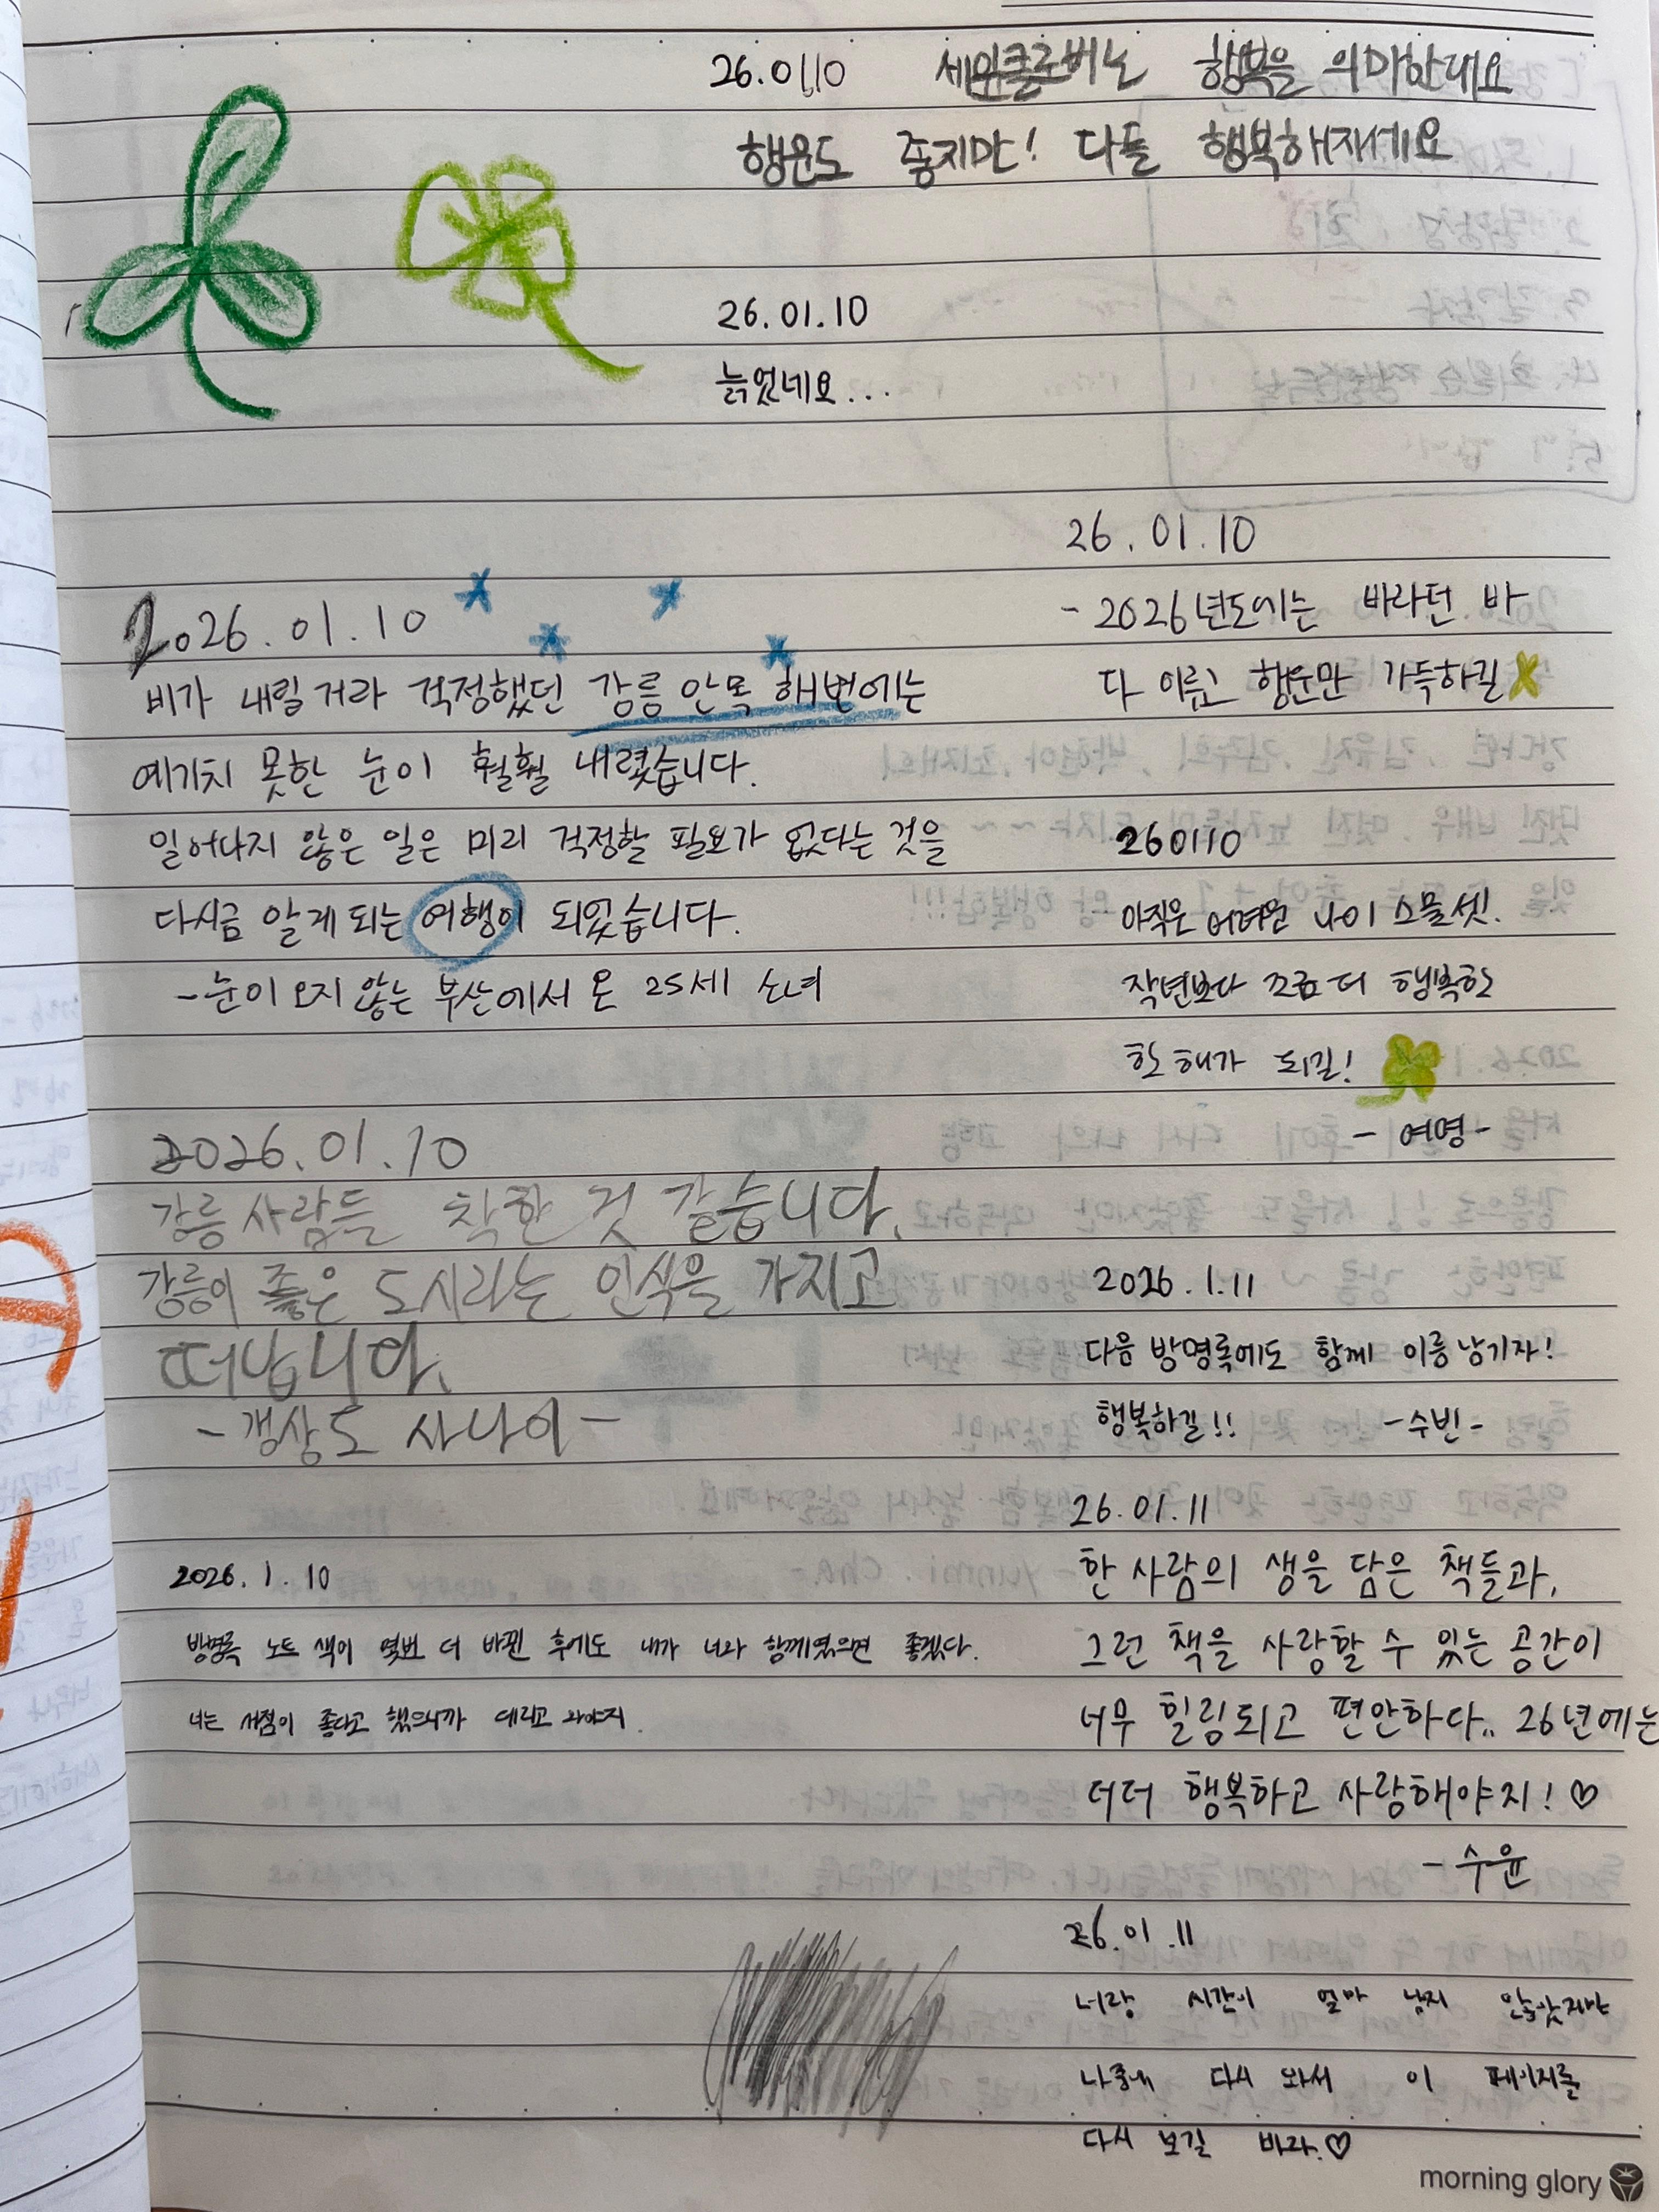 26.01.10 세잎클로버는 행복을 의미한대요
행운도 좋지만! 다들 행복해지세요
26.01.10
늙었네요...
2026.01.10
비가 내릴 거라 걱정했던 강릉 안목 해변에는
예기치 못한 눈이 훨훨 내렸습니다.
일어나지 않은 일은 미리 걱정할 필요가 없다는 것을
다시금 알게 되는 여행이 되었습니다.
-눈이 오지 않는 부산에서 온 25세 소녀
26.01.10
- 2026년도에는 바라던 바
다 이루고 행운만 가득하길
260110
아직은 어려운 나이 스물셋.
작년보다 조금 더 행복한
한 해가 되길!
- 여명 -
2026.01.10
강릉 사람들 착한 것 같습니다.
강릉이 좋은 도시라는 인식을 가지고
떠납니다.
- 갱상도 사나이 -
2026.1.11
다음 방명록에도 함께 이름 남기자!
행복하길!! -수빈-
2026.1.10
방명록 노트 색이 몇번 더 바뀐 후에도 내가 너와 함께였으면 좋겠다.
너는 서점이 좋다고 했으니까 데리고 와야지.
26.01.11
한 사람의 생을 담은 책들과,
그런 책을 사랑할 수 있는 공간이
너무 힐링되고 편안하다.. 26년에는
더더 행복하고 사랑해야지! ♡
- 수윤
26.01.11
너랑 시간이 얼마 남지 않았지만
나중에 다시 와서 이 페이지를
다시 보길 바라.♡
morning glory